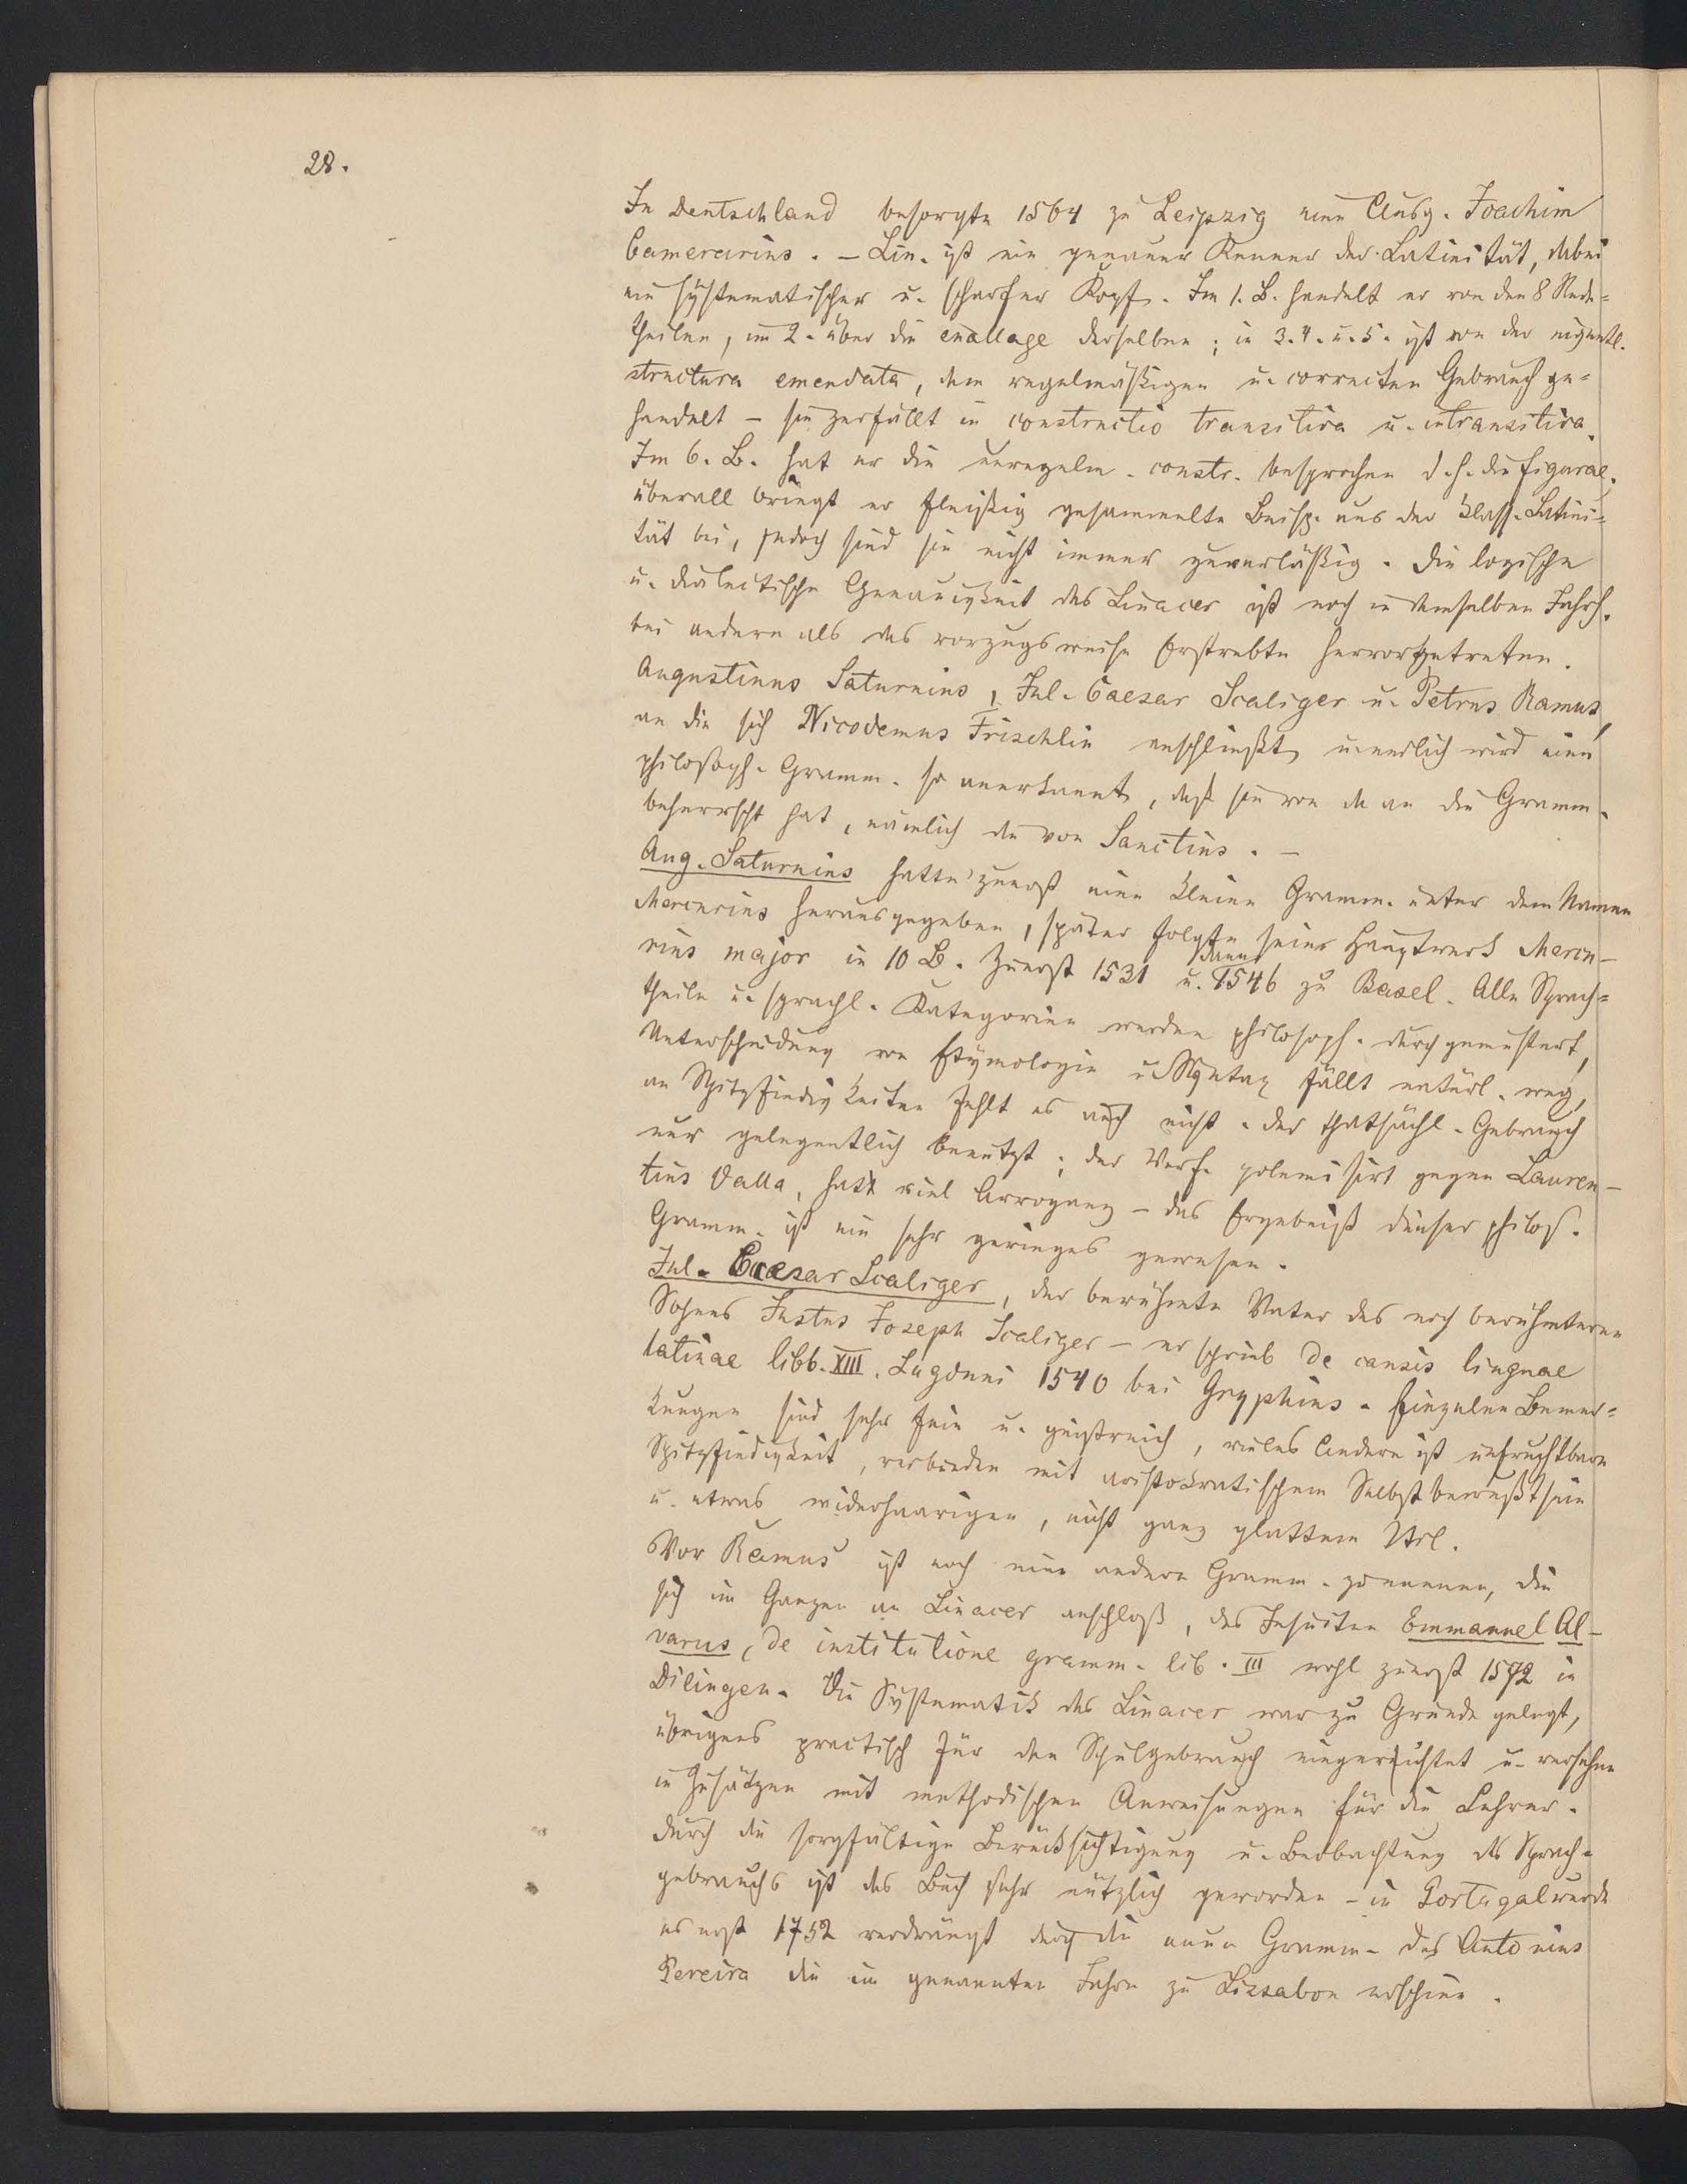 28.
In Deutschland besorgte 1564 zu Leipzig eine Ausg. Joachim
Camerarius. – Lin. ist ein genauer Kenner der Latinität, dabei
ein systematischer u. scharfer Kopf. Im 1. B. handelt er von den 8 Rede=
theilen, im 2. über die enallage derselben; in 3. 4. u. 5. ist von der eigentl.
structura emendata, dem regelmäßigen u. correcten Gebrauch ge=
handelt – sie zerfällt in constructio transitiva u. intransitiva.
Im 6. B. hat er die unregelm. constr. besprochen d. h. die figurae.
überall bringt er fleißig gesammelte Beisp. aus der klass. Latini=
tät bei, jedoch sind sie nicht immer zuverläßig. Die logische
u. dialectische Genauigkeit des Linacer ist noch in demselben Jahrh.
bei andern als das vorzugsweise Erstrebte hervorgetreten.
Augustinus Saturnius, Jul. Caesar Scaliger u. Petrus Ramus,
an die sich Nicodemus Frischlin anschließt, u. endlich wird eine
philosoph. Gramm. so anerkannt, daß sie von da an die Gramm.
beherrscht hat, nämlich die von Sanctius. –
Aug. Saturnius hatte zuerst eine kleine Gramm. unter dem Namen
Mercurius herausgegeben, später folgte sein Hauptwerk Mercu-
rius major in 10 B. Zuerst 1531 u. dann 1546 zu Basel. Alle Sprach=
theile u. sprachl. Kategorien werden philosoph. durchgemustert,
Unterscheidung von Etymologie u. Syntax fällt natürl. weg,
an Spitzfindigkeiten fehlt es auch nicht. der thatsächl. Gebrauch
nur gelegentlich benutzt; der Verf. polemisirt gegen Lauren-
tius Valla, hat viel Arroganz – das Ergebniß dieser philos.
Gramm. ist ein sehr geringes gewesen.
Jul. Caesar Scaliger, der berühmte Vater des noch berühmteren
Sohnes Justus Joseph Scaliger – er schrieb de causis linguae
latinae libb. XIII. Lugduni 1540 bei Gryphius. Einzelne Bemer=
kungen sind sehr fein u. geistreich, vieles Andere ist unfruchtbare
Spitzfindigkeit, verbunden mit aristokratischem Selbstbewußtsein
u. etwas widerhaarigen, nicht ganz glattem Stil.
Vor Ramus ist noch eine andere Gramm. zu nennen, die
sich im Ganzen an Linacer anschloß, des Jesuiten Emmanuel Al-
varus, de institutione gramm. lib. III wohl zuerst 1572 in
Dilingen. Die Systematik des Linacer war zu Grunde gelegt,
übrigens practisch für den Schulgebrauch eingerichtet u. versehen
in Zusätzen mit methodischen Anweisungen für die Lehrer.
durch die sorgfältige Berücksichtigung u. Beobachtung des Sprach=
gebrauchs ist das Buch sehr nützlich geworden – in Portugal wurde
es erst 1752 verdrängt durch die neue Gramm. des Antonius
Pereira die im genannten Jahre zu Lissabon erschien.